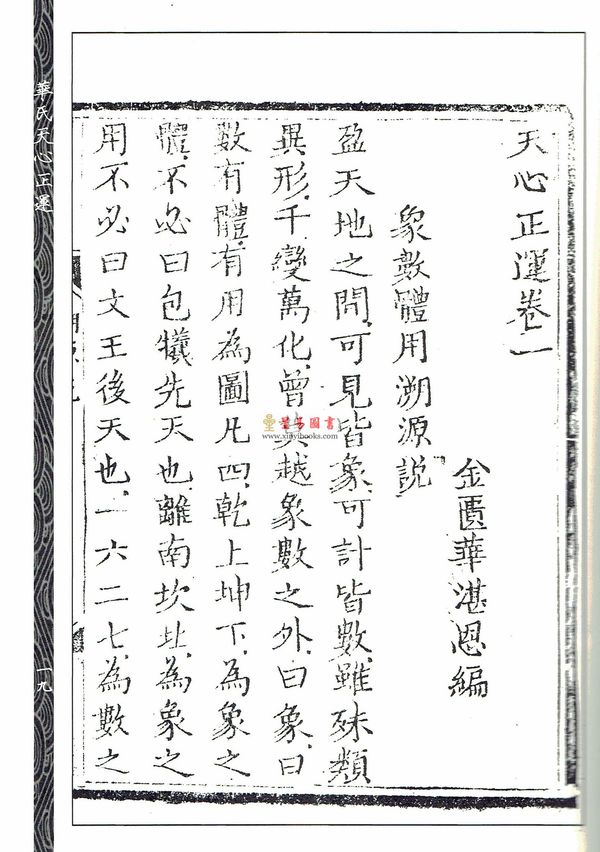 天心正運卷一
金匱華湛恩編
象數體用溯源說
盈天地之間、可見皆象、可計皆數、雖殊類
異形、千變萬化、曾莫越象數之外、曰象、曰
數有體、有用、為圖凡四、乾上坤下、為象之
體、不必曰包犧先天也、離南坎北、為象之
用不必曰文王後天也、一六二七、為數之
華氏天心正運
一九
星易圖書
www.xinyibooks.com